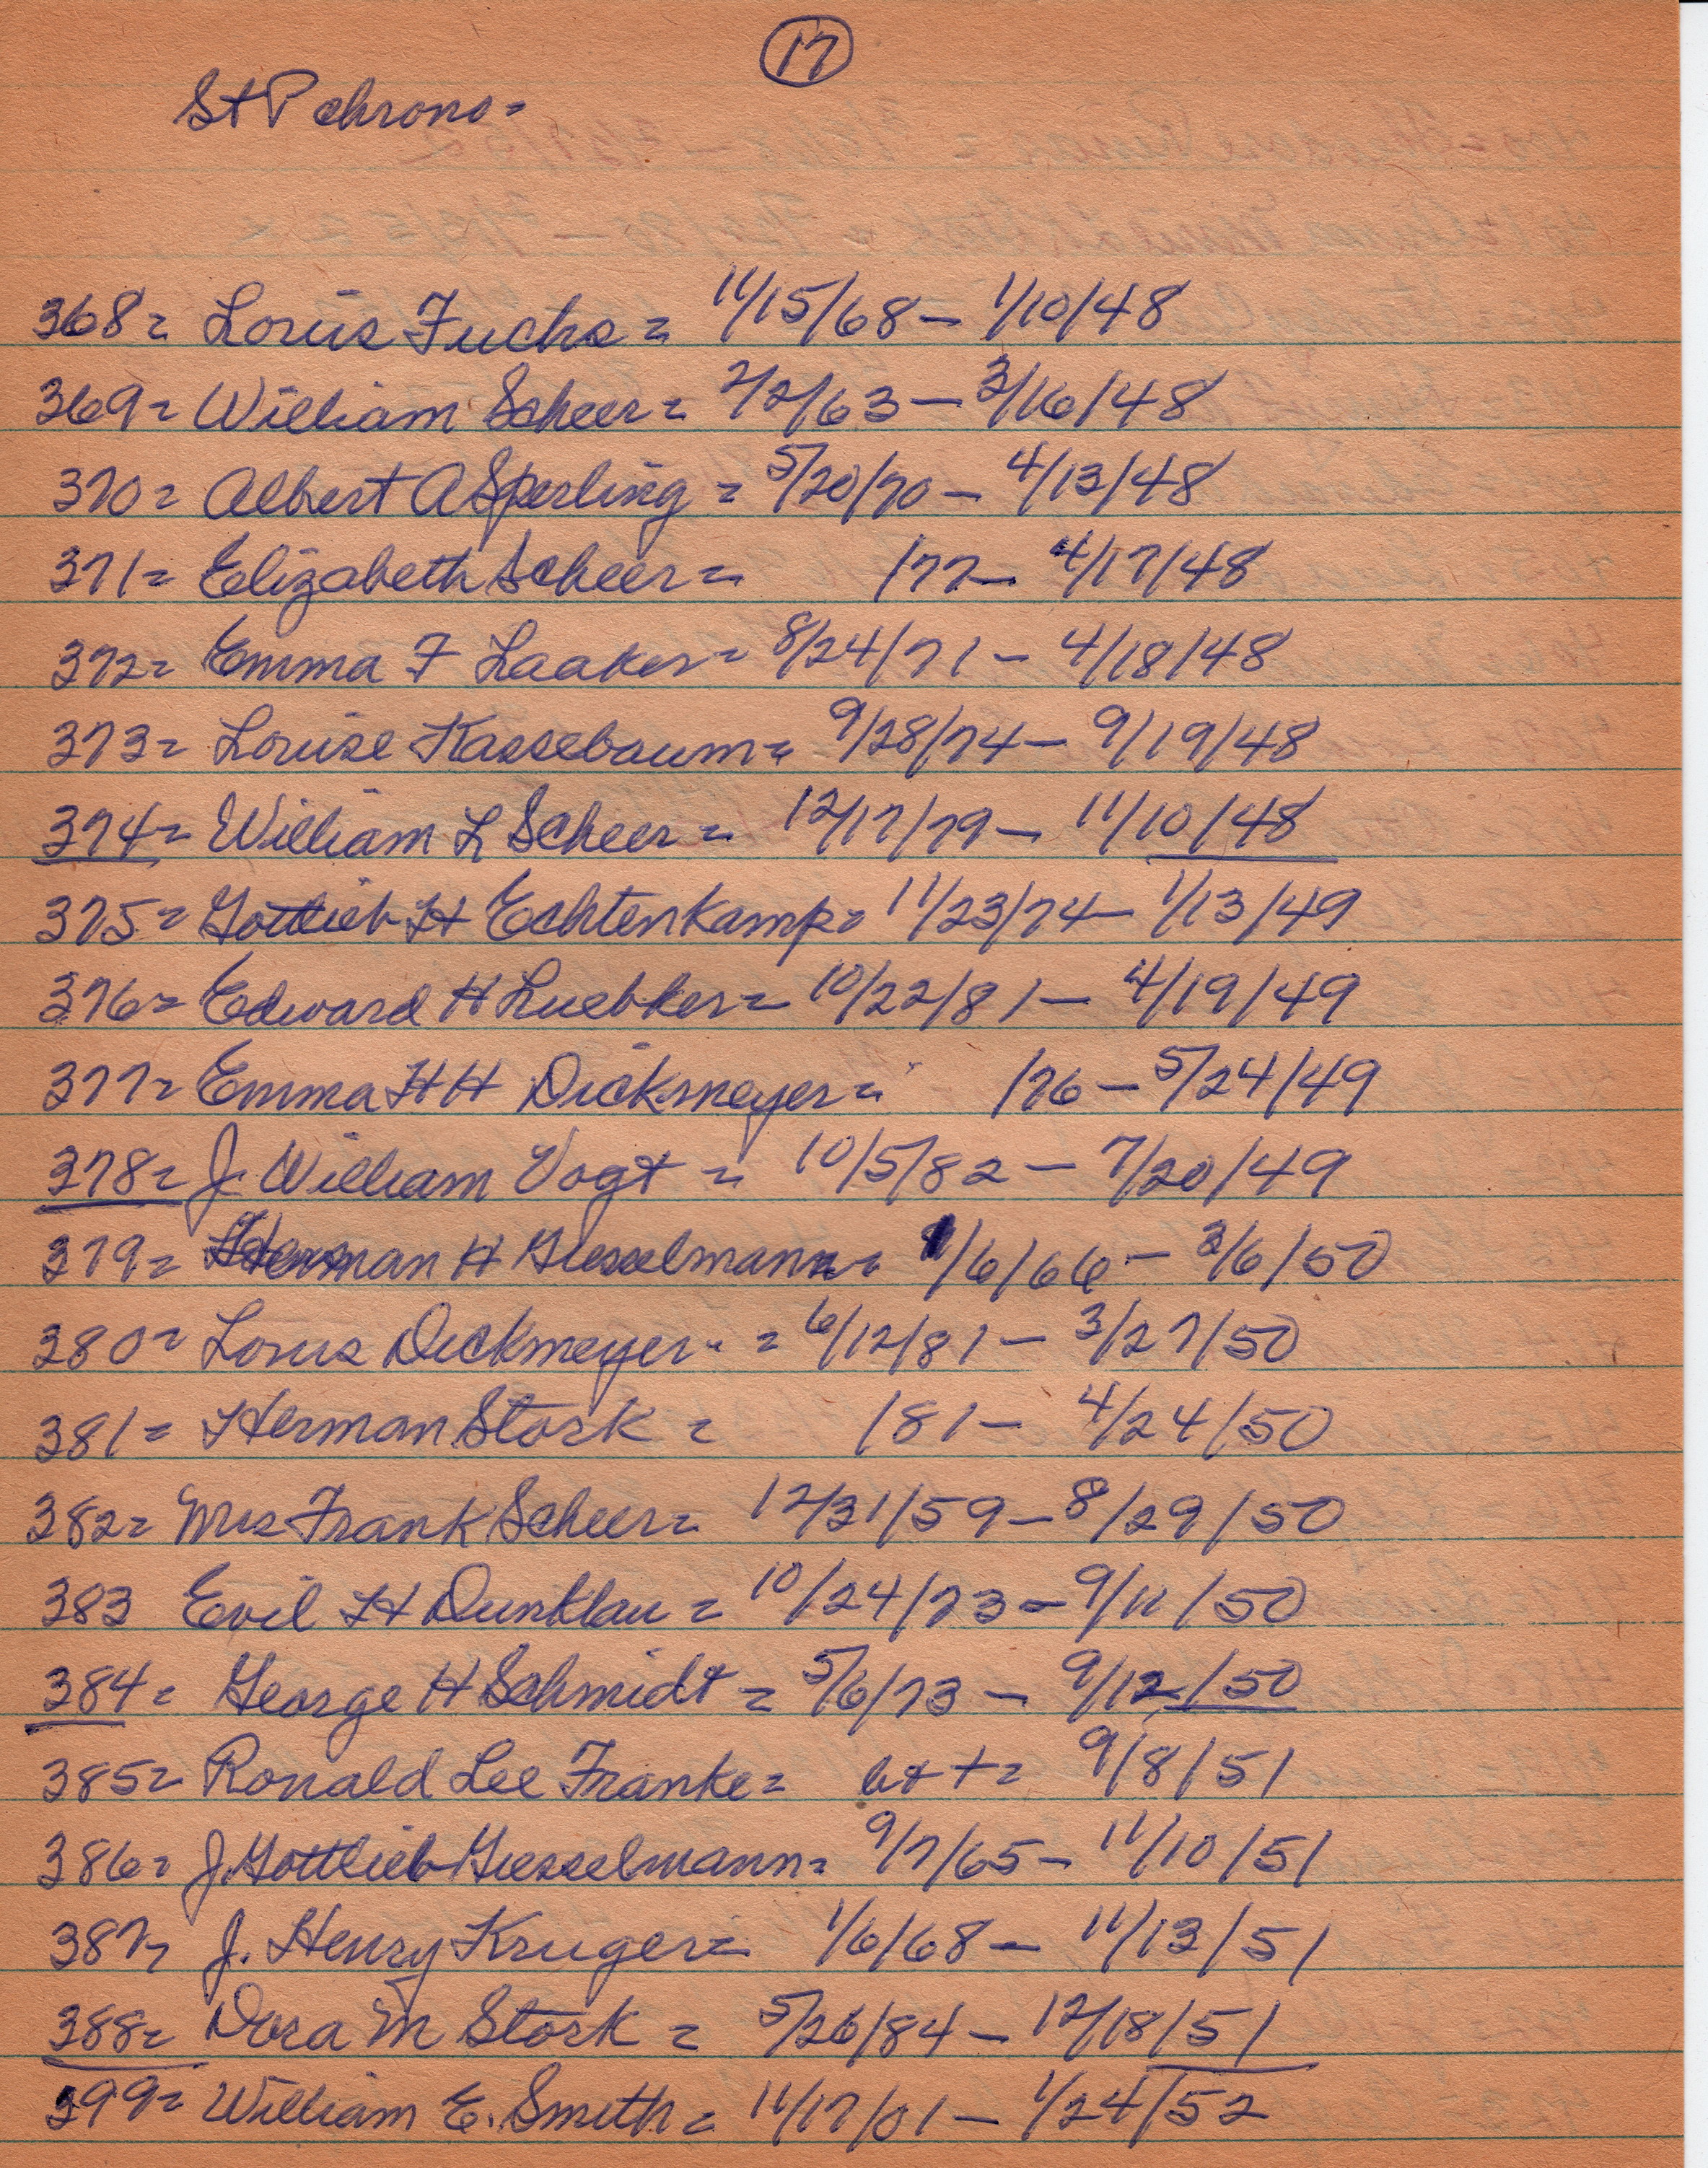 17
St P chrono=
368= Louis Fuchs = 11/15/68 - 1/10/48
369= William Scheer = 2/2/63 - 3/16/48
370= Albert A Sperling = 5/20/70 - 4/13/48
371= Elizabeth Scheer = /77 - 4/17/48
372= Emma F Laaker = 8/24/71 - 4/18/48
373= Louise Kassebaum = 9/28/74 - 9/19/48
374= William L Scheer = 12/17/79 - 11/10/48
375= Gottlieb H Echtenkamp= 11/23/74 - 1/13/49
376= Edward H Luebker= 10/22/81 - 4/19/49
377= Emma H H Dickmeyer = /76 - 5/24/49
378= J. William Vogt = 10/5/82 - 7/20/49
379= Herman H Giesselmann= 1/6/66 - 3/6/50
380= Louis Dickmeyer = 6/12/81 - 3/27/50
381= Herman Stork = /81 - 4/24/50
382= Mrs Frank Scheer= 12/31/59 - 8/29/50
383 Evil H Dunklau = 10/24/73 - 9/11/50
384= George H Schmidt = 5/6/73 - 9/12/50
385= Ronald Lee Franke= += 9/8/51
386= J. Gottlieb Giesselmann= 9/7/65 - 11/10/51
387= J. Henry Kruger= 1/6/68 - 11/13/51
388= Dora M Stork = 5/26/84 - 12/18/51
399= William E. Smith = 11/17/01 - 1/24/52